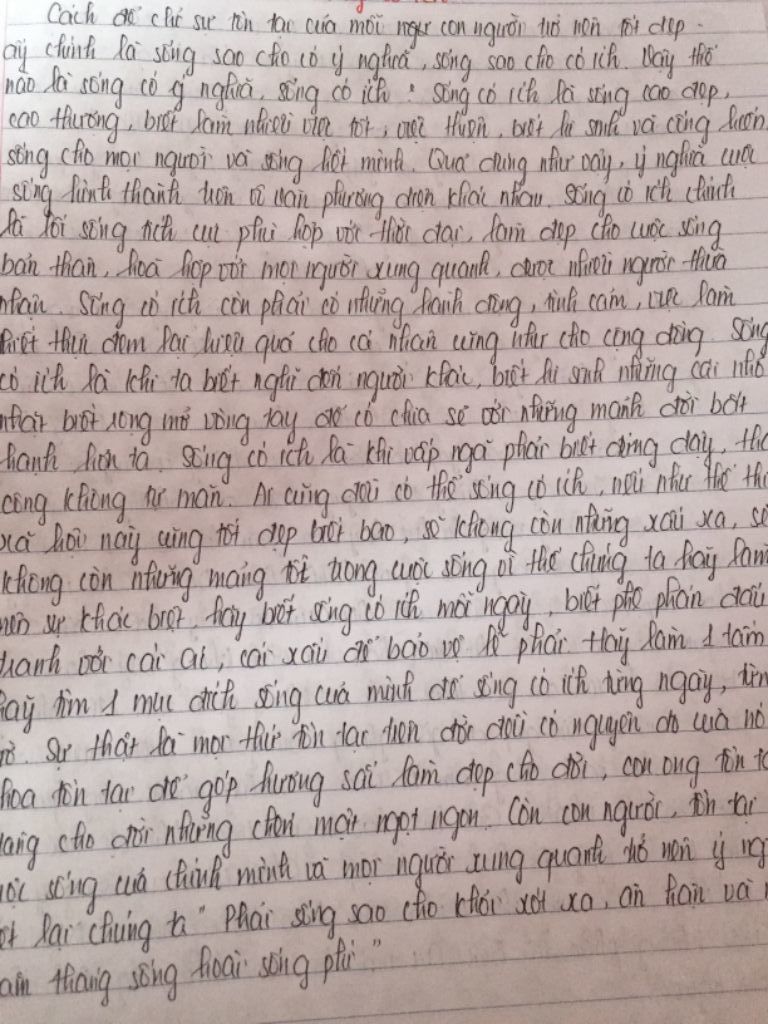 Cách để chỉ sự tồn tại của mỗi người con người trở nên tốt đẹp.
ấy chính là sống sao cho có ý nghĩa, sống sao cho có ích. Vậy thế
nào là sống có ý nghĩa, sống có ích : sống có ích là sống cao đẹp,
cao thượng, biết làm nhiều việc tốt, việc thiện, biết hi sinh và cống hiến.
sống cho mọi người và sống hết mình. Quả đúng như vậy, ý nghĩa cuộc
sống hình thành trên vô vàn phương diện khác nhau. Sống có ích chính
là lối sống tích cực phù hợp với thời đại, làm đẹp cho cuộc sống
bản thân, hoà hợp với mọi người xung quanh, được nhiều người thừa
nhận. Sống có ích còn phải có những hành động, tình cảm, việc làm
thiết thực đem lại hiệu quả cho cá nhân cũng như cho cộng đồng. Sống
có ích là khi ta biết nghĩ đến người khác, biết hi sinh những cái nhỏ
nhặt biết rộng mở vòng tay để có chia sẻ với những mảnh đời bất
hạnh hơn ta. Sống có ích là khi vấp ngã phải biết đứng dậy, thà
công không tự mãn. Ai cũng đều có thể sống có ích, nếu như thế thì
xã hội này cũng tốt đẹp biết bao, sẽ không còn những xấu xa, sẽ
không còn những mảng tối trong cuộc sống vì thế chúng ta hãy làm
nên sự khác biệt, hãy biết sống có ích mỗi ngày, biết phê phán đấu
tranh với cái ai, cái xấu để bảo vệ lẽ phải Hãy làm 1 tấm
hãy tìm 1 mục đích sống của mình để sống có ích từng ngày, từn
Sự thật là mọi thứ tồn tại trên đời đều có nguyên do của nó
hoa tồn tại để góp hương sắc làm đẹp cho đời, con ong tồn tạ
mang cho đời những chén mật ngọt ngon. Còn con người, tồn tại
cuộc sống của chính mình và mọi người xung quanh trở nên ý ng
lại chúng ta " Phải sống sao cho khỏi xót xa, ân hận và
năm tháng sống hoài sống phí "